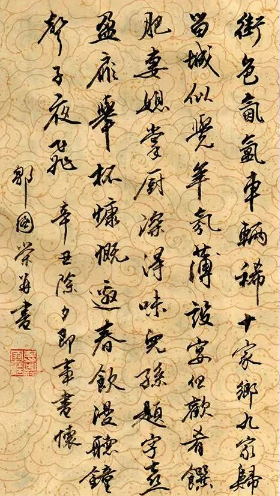 街色氤氲车辆稀十家乡九家归
留城似觉年氛薄设宴但欢肴馔
肥妻媳掌厨深得味儿孙题字喜
盈扉举杯慷慨邀春饮漫听钟
声子夜飞辛丑除夕即事书怀
邹国荣并书